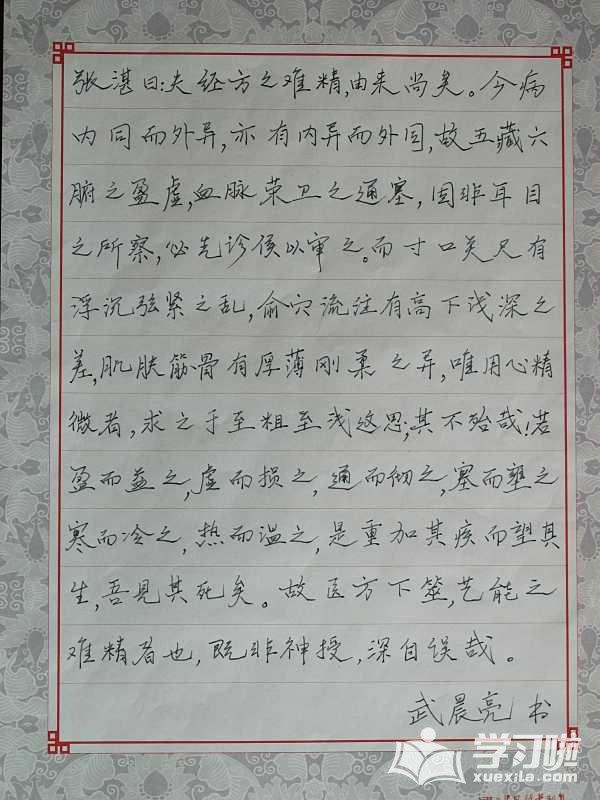 张湛曰:夫经方之难精,由来尚矣。今病
内同而外异,亦有内异而外同,故五藏六
腑之盈虚,血脉荣卫之通塞,固非耳目
之所察,必先诊候以审之。而寸口关尺有
浮沉弦紧之乱,俞穴流注有高下浅深之
差,肌肤筋骨有厚薄刚柔之异,唯用心精
微者,求之于至粗至浅这思,其不殆哉!若
盈而益之,虚而损之,通而彻之,塞而壅之
寒而冷之,热而温之,是重加其疾而望其
生,吾见其死矣。故医方下筮,艺能之
难精者也,既非神授,深自误哉。
武晨亮书
学习啦
xuexila.com